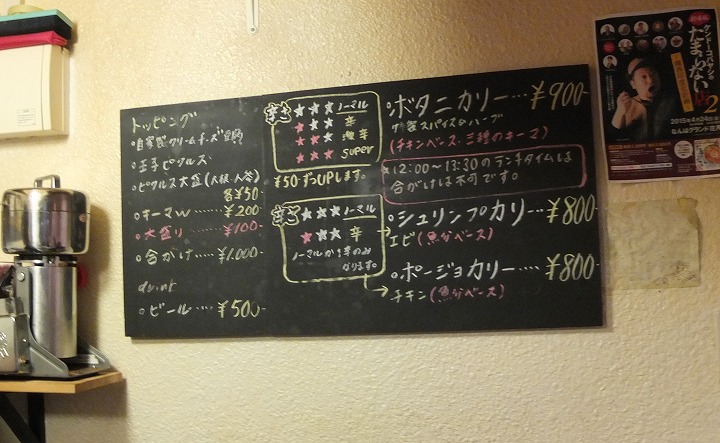 トッピング
。自家製クリームチーズ豆腐
。玉子ピクルス
。ピクルス大盛(大根・人参)
各¥50-
。キーマW……¥200-
。大盛り……¥100-
。合がけ……¥1.000-
drink
。ビール……¥500-
辛さ ★★★ ノーマル
★★★ 辛
★★★ 激辛
★★★ SUPER
¥50-ずつUPします。
辛さ ★★★ ノーマル
★★★ 辛
ノーマルか辛のみ
なります。
。ボタニカリー…¥900-
スパイス&ハーブ
(チキンベース・三種のキーマ)
※12:00〜13:30のランチタイムは
合がけは不可です。
。シュリンプカリー…¥800-
エビ(魚分ベース)
。ポージョカリー……¥800-
チキン(魚分ベース)
ケンドーコバヤシの
たまらない
2
2015年4月24日
なんばグランド花月